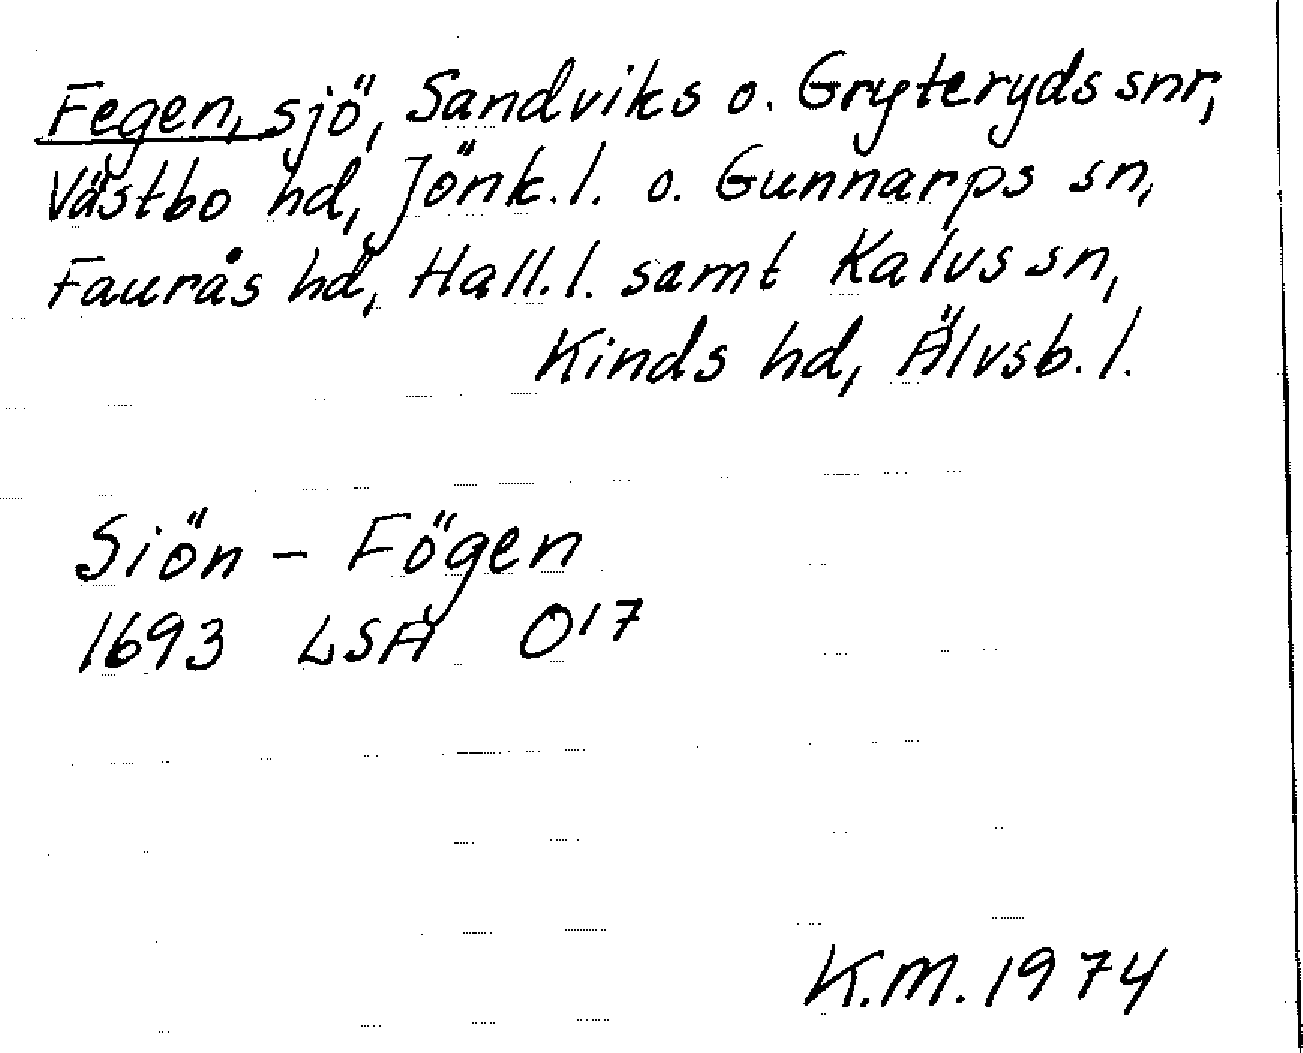 Fegen, sjö, Sandviks o. Gryteryds snr,
Västbo hd, Jönk.l. o. Gunnarps sn,
Faurås hd, Hall.l. samt Kalvs sn,
Kinds hd, Älvsb.l.
Siön - Fögen
1693 LSA O17
K.M. 1974